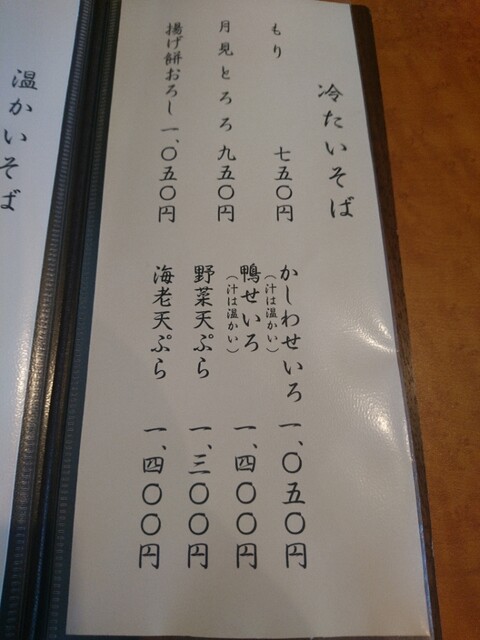 冷たいそば
もり 七五〇円
月見とろろ 九五〇円
揚げ餅おろし 一、〇五〇円
かしわせいろ 一、〇五〇円
（汁は温かい）
鴨せいろ 一、四〇〇円
（汁は温かい）
野菜天ぷら 一、三〇〇円
海老天ぷら 一、四〇〇円
温かいそば